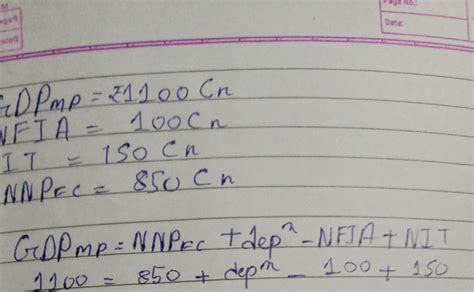 Page No.:
Date:
GDPMP = ₹1100 Cr
NFIA = 100 Cr
IT = 150 Cr
NNPFC = 850 Cr
GDPMP = NNPFC + depⁿ - NFIA + NIT
1100 = 850 + depⁿ - 100 + 150